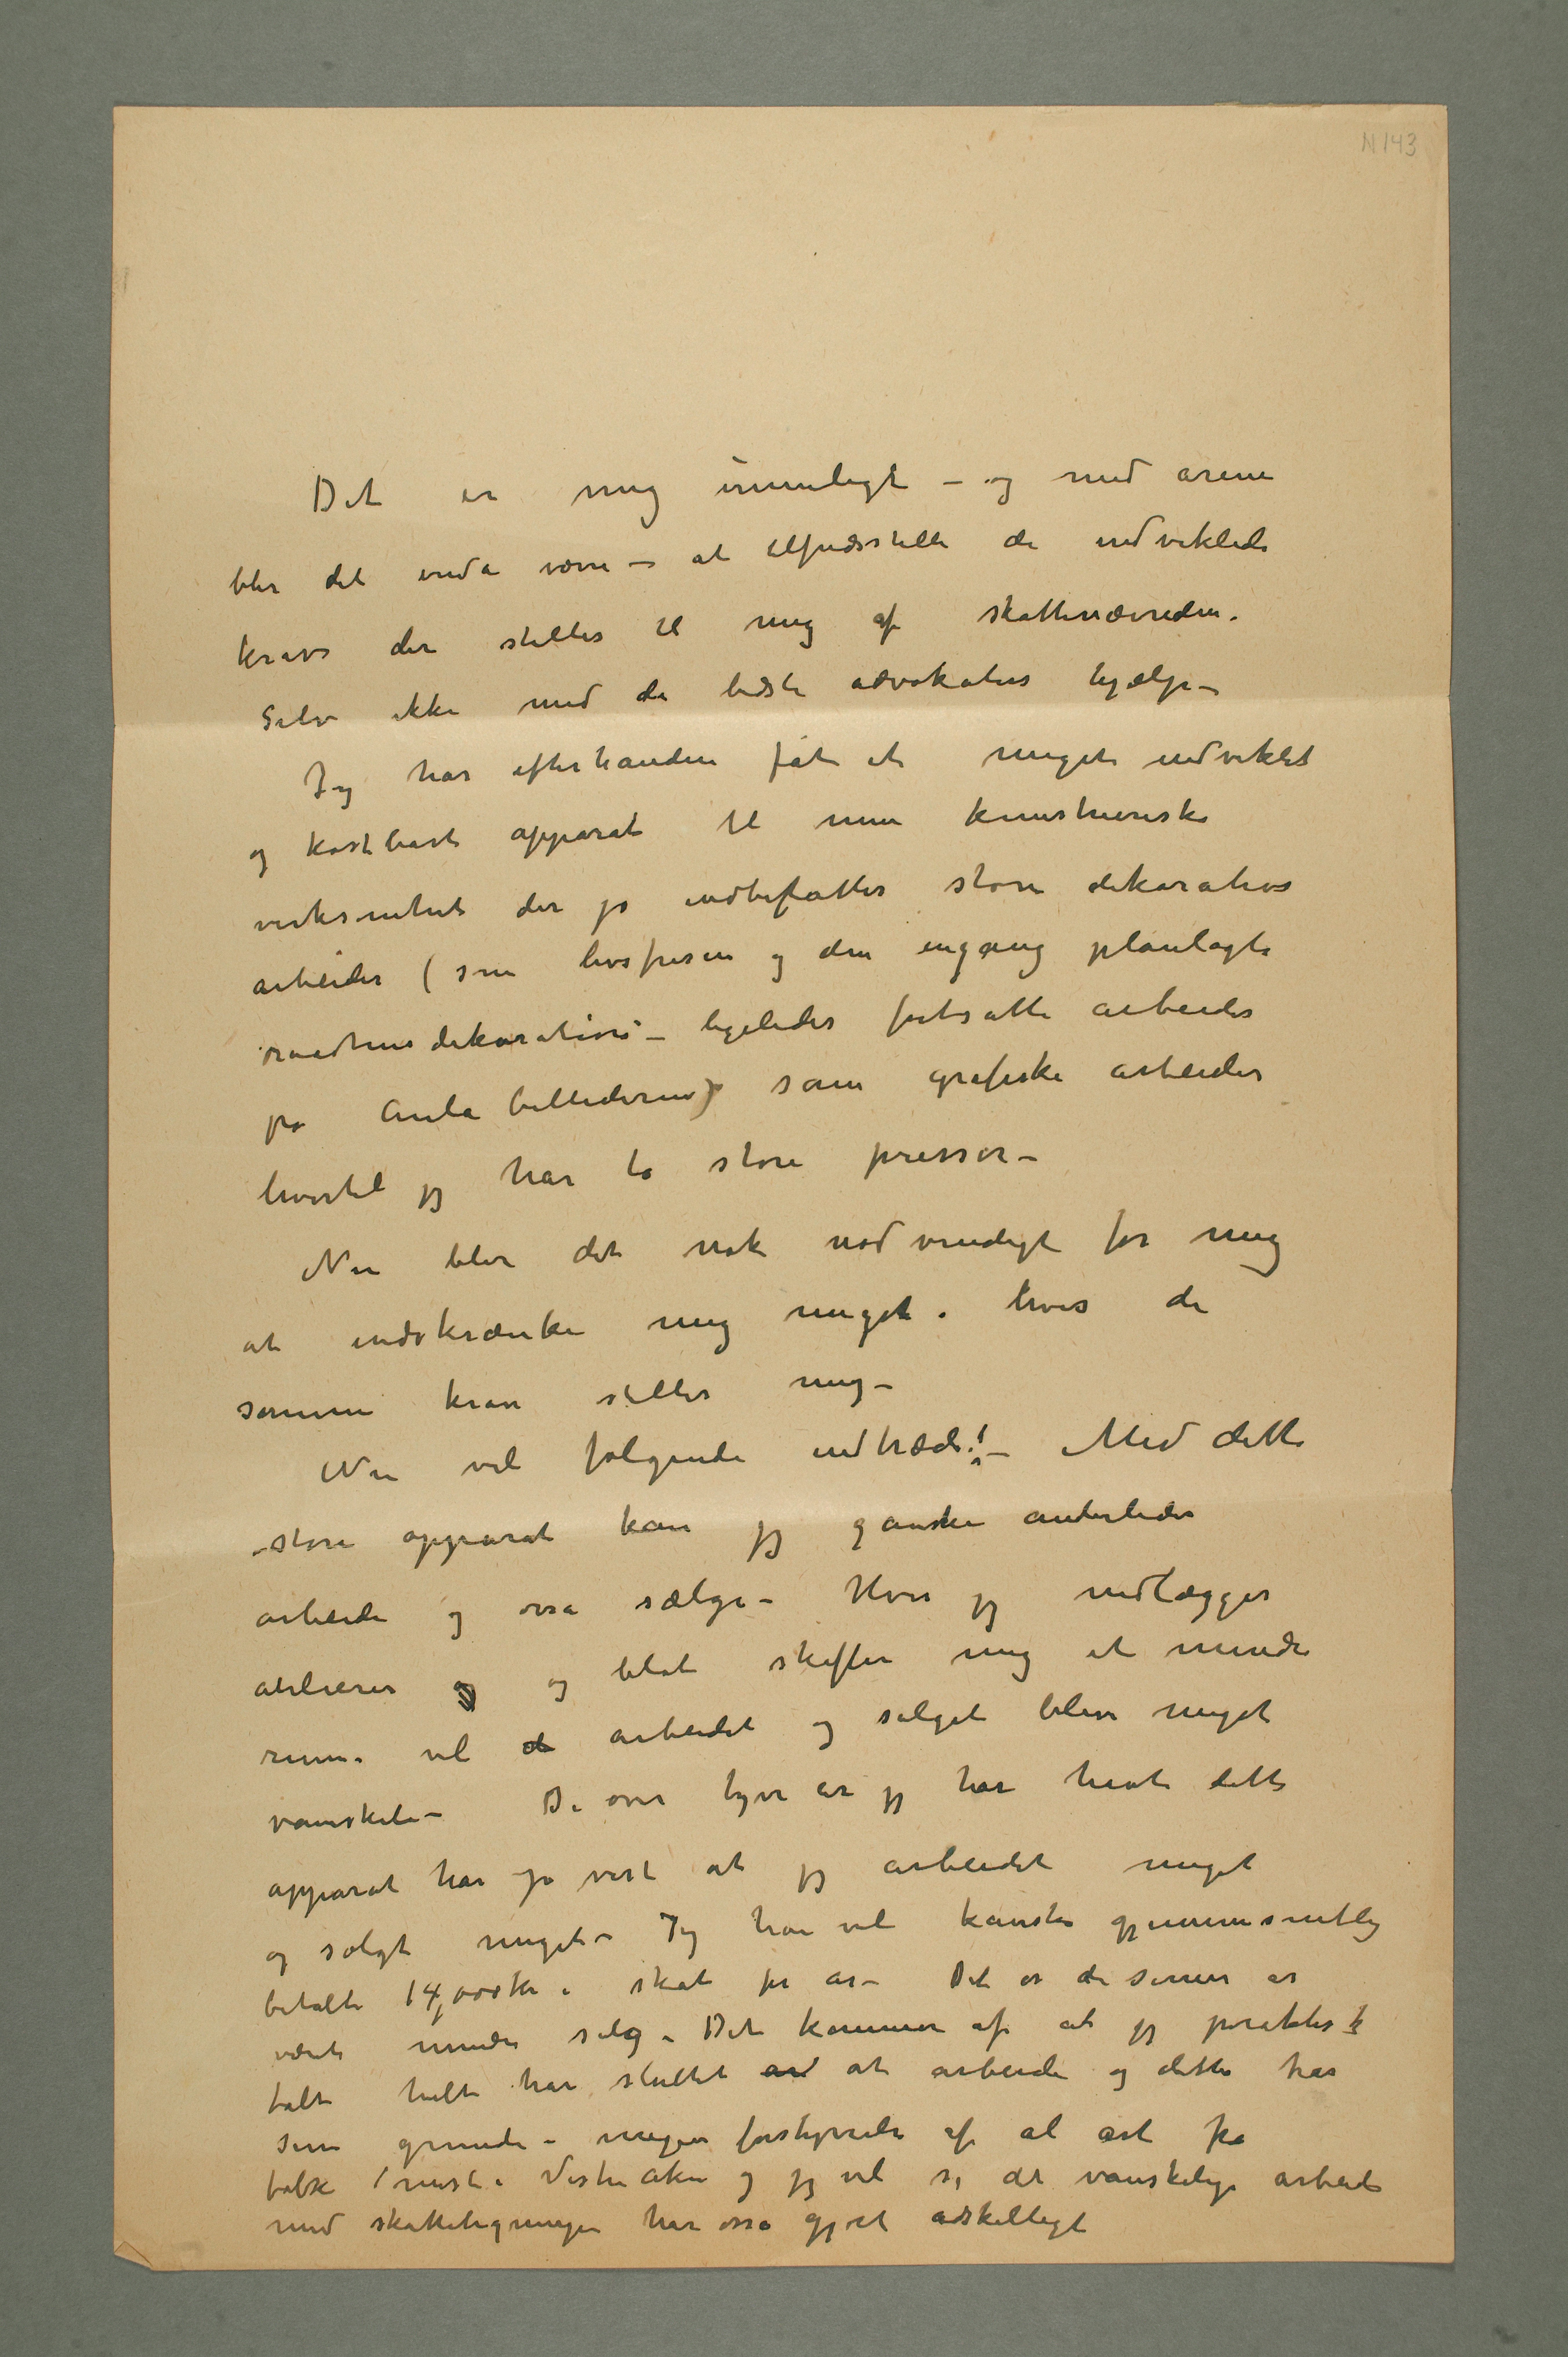 N 143
Det er mig umuligt – og med arene
blir det enda værre – at tilfredsstille de indviklede
krav der stilles til mig af skattenævnden.
Selv ikke med de bedste advokaters hjælp –
Jeg har efterhanden fåt et meget indviklet
og kostbart apparat til min kunstneriske
virksomhet der jo indbefatter store dekorative
arbeider (som livsfrisen og den engang planlagte
raadhusdekoration – ligeledes fortsatte arbeider
på Aulabillederne) som grafiske arbeider
hvortil jeg har to store presser –
Nu blir det nok nødvendigt for mig
at indskrænke mig meget. hvis de
samme krav stilles mig –
Nu vil følgende indtræde! – Med dette
store apparat kan jeg ganske anderledes
arbeide og osså sælge – Hvis jeg nedlægger
atelierer og blot skaffer mig et mindre
rum. vil arbeidet og salget bli meget
vanskeli – De over tyve år jeg har havt dette
apparat har jo vist at jeg arbeidet meget
og solgt meget – Jeg har vel kanske gjennemsnitlig
betalt 14,000 kr i skat pr år – Det er de senere år
været mindre salg – Det kommer af at jeg praktisk
talt helt har sluttet at arbeide og dette har
sin grund i megen forstyrrelse af al art fra
folk mest i Vestre Aker og jeg vil si det vanskelige arbeide
med skatteligningen har osså gjort adskilligt